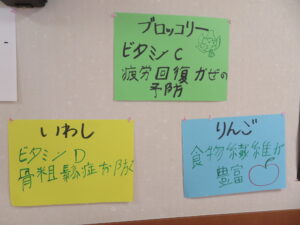 ブロッコリー
ビタミンC
疲労回復かぜの
予防
いわし
ビタミンD
骨粗鬆症を防ぐ
りんご
食物繊維が
豊富